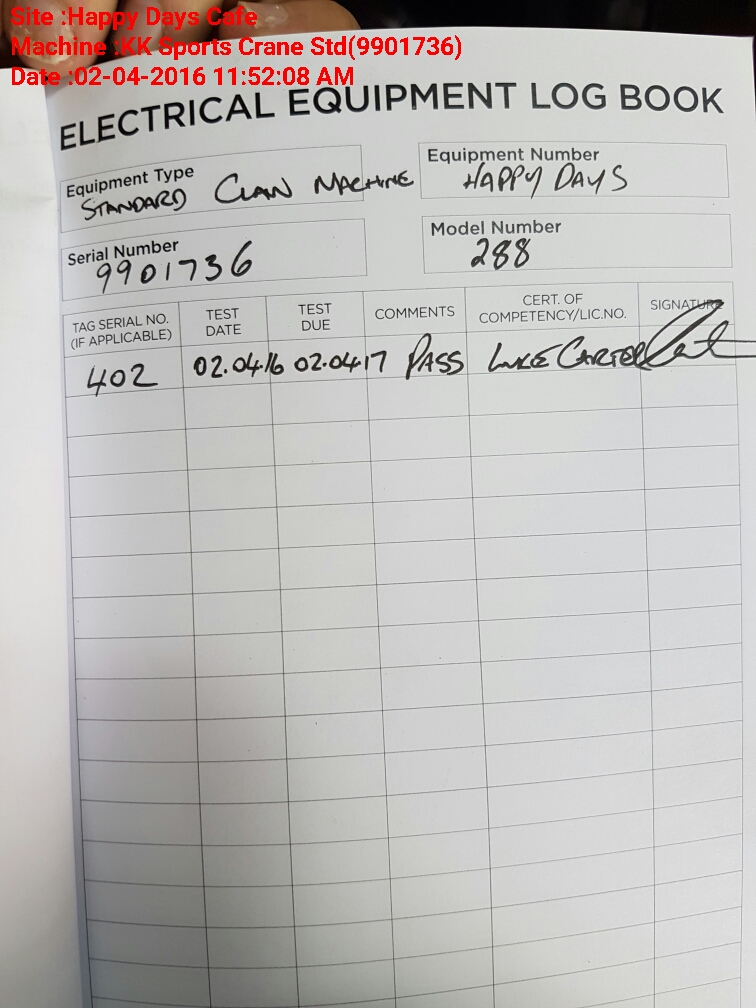 Site :Happy Days Cafe
Machine :KK Sports Crane Std(9901736)
Date :02-04-2016 11:52:08 AM
ELECTRICAL EQUIPMENT LOG BOOK
Equipment Type
STANDARD CLAW MACHINE
Equipment Number
HAPPY DAYS
Serial Number
9901736
Model Number
288
TAG SERIAL NO.
(IF APPLICABLE)
TEST
DATE
TEST
DUE
COMMENTS
CERT. OF
COMPETENCY/LIC.NO.
SIGNATURE
402 02.04.16 02.04.17 PASS LUKE CARTER